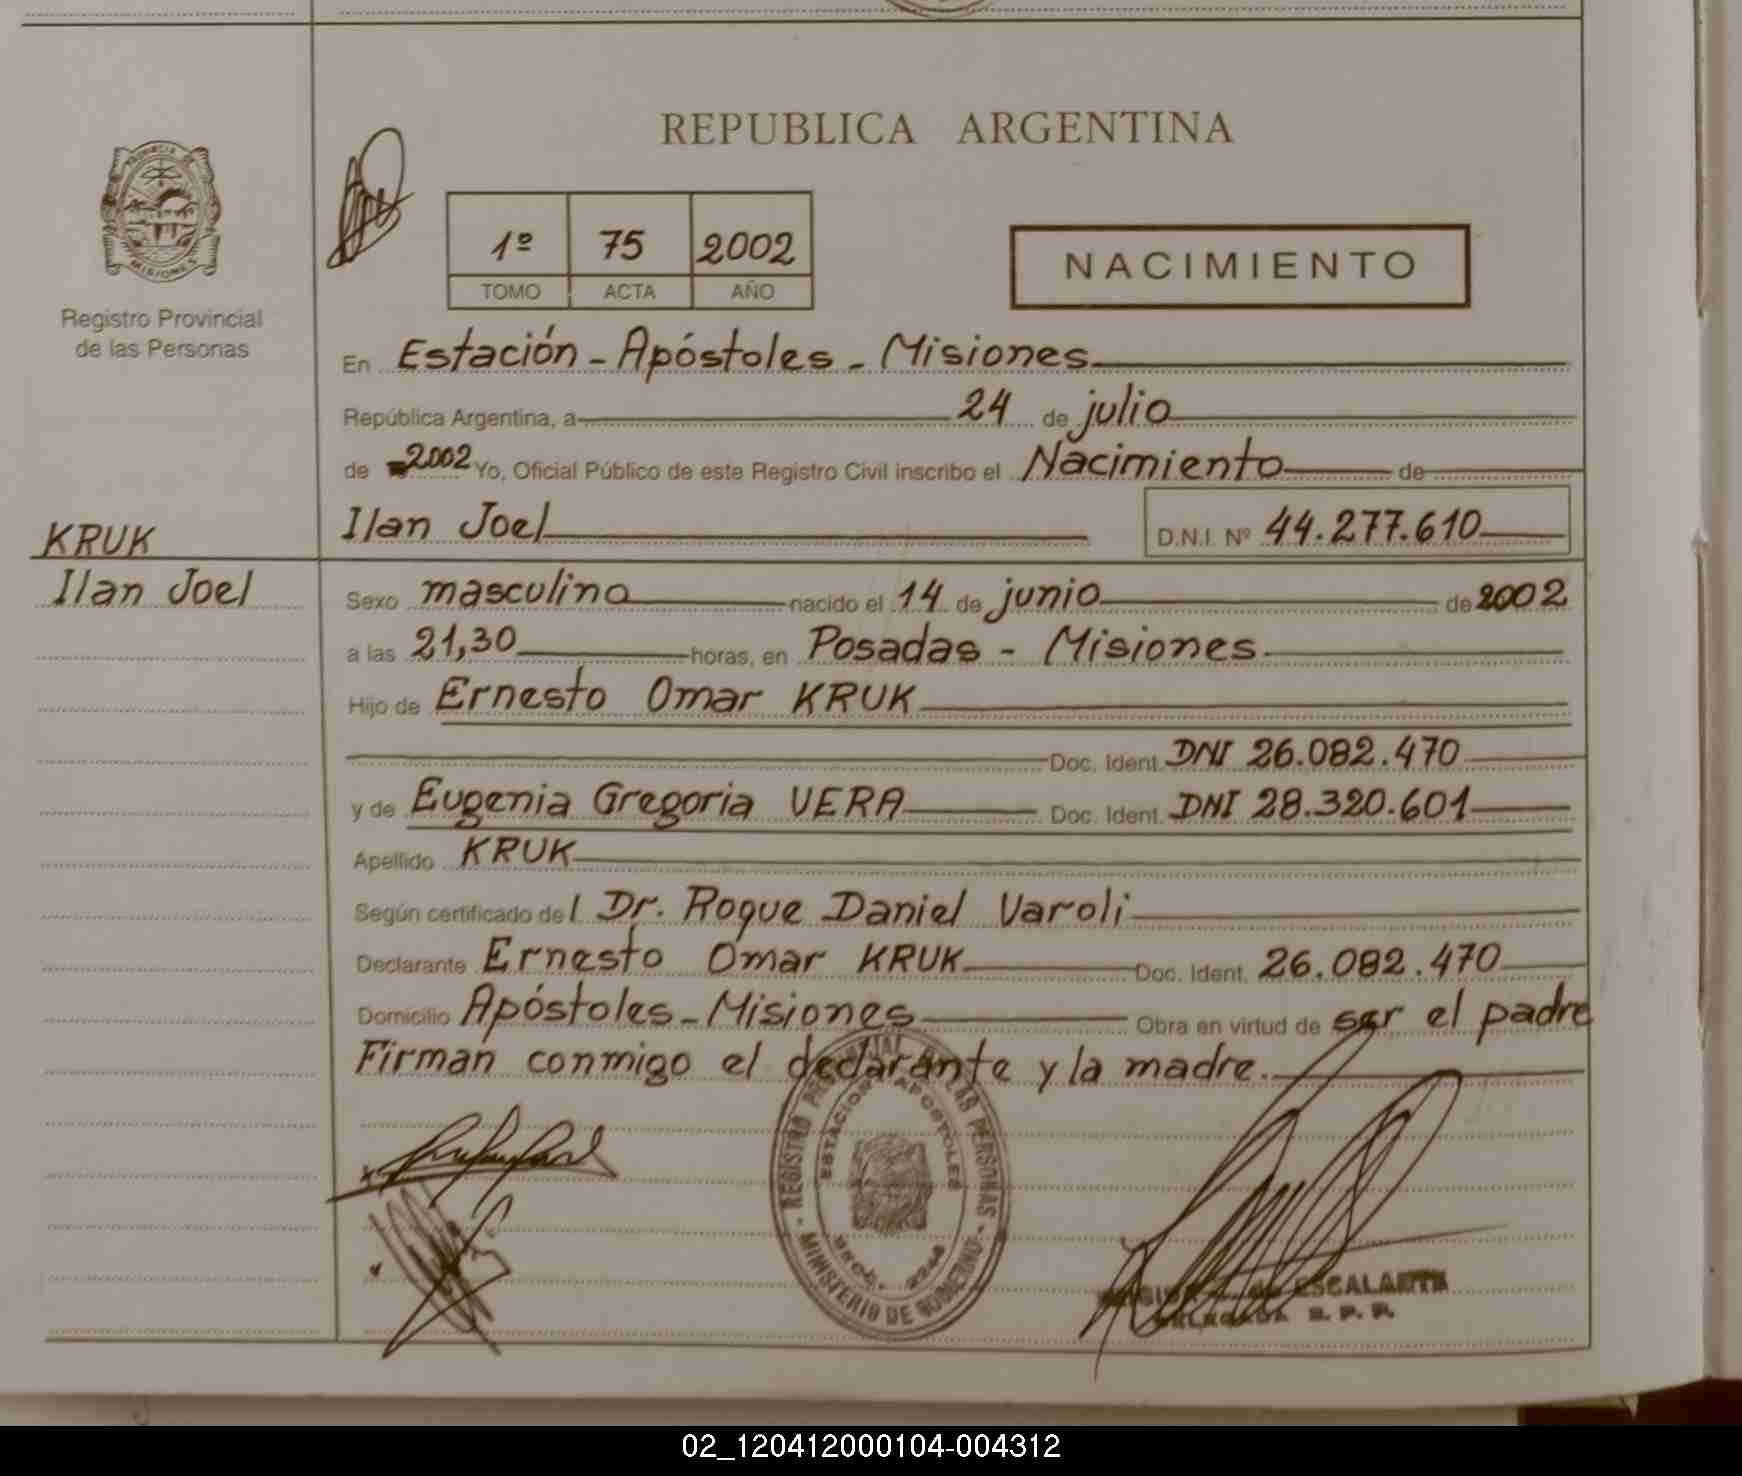 REPUBLICA ARGENTINA
PROVINCIA DE
MISIONES
Registro Provincial
de las Personas
1º 75 2002
TOMO ACTA AÑO
NACIMIENTO
En Estación - Apóstoles - Misiones
República Argentina, a 24 de julio
de 2002 Yo, Oficial Público de este Registro Civil inscribo el Nacimiento de
KRUK
Ilan Joel D.N.I. Nº 44.277.610
Ilan Joel
Sexo masculino nacido el 14 de junio de 2002
a las 21,30 horas, en Posadas - Misiones
Hijo de Ernesto Omar KRUK
Doc. Ident. DNI 26.082.470
y de Eugenia Gregoria VERA Doc. Ident. DNI 28.320.601
Apellido KRUK
Según certificado del Dr. Roque Daniel Varoli
Declarante Ernesto Omar KRUK Doc. Ident. 26.082.470
Domicilio Apóstoles - Misiones Obra en virtud de ser el padre
Firman conmigo el declarante y la madre.
REGISTRO DE LAS PERSONAS
ESTACION APOSTOLES
MINISTERIO DE GOBIERNO
ESCALANTE
R. P. P.
02_120412000104-004312